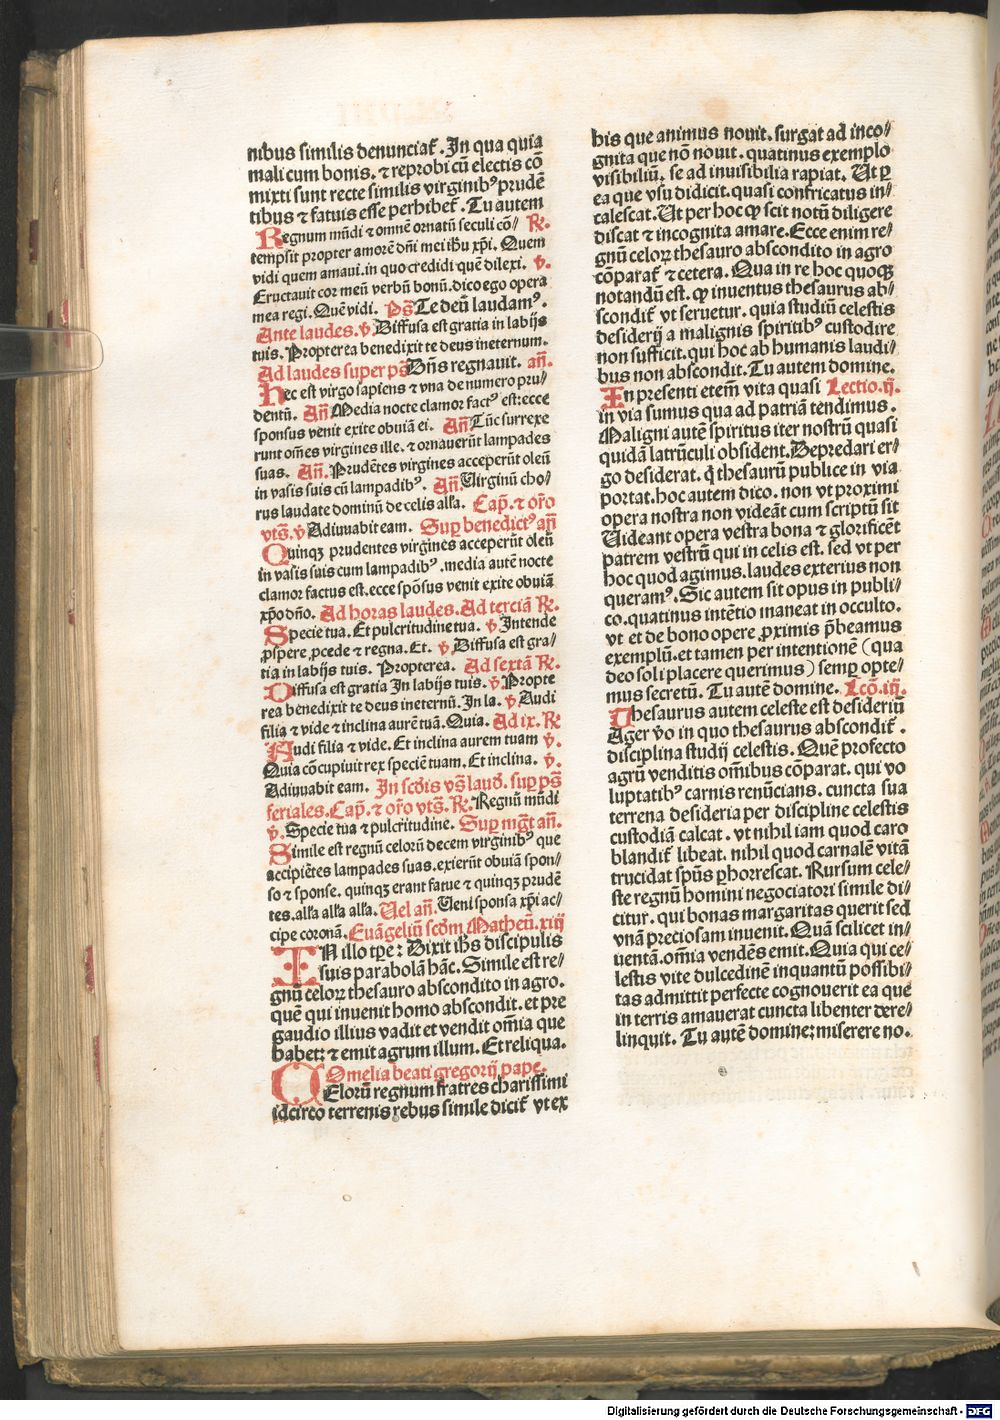 nibus similis denunciat᷑. In qua quia
mali cum bonis. ⁊ reprobi cū electis cō
mixti sunt recte similis virginibꝰ prudē
tibus ⁊ fatuis esse perhibet᷑. Tu autem
Regnum mūdi ⁊ omnē ornatū seculi cō⸗ R̄.
tempsit propter amorē dn̄i mei ihu xp̄i. Quem
vidi quem amaui. in quo credidi quē dilexi. v̄.
Eructauit cor meū verbū bonū. dico ego opera
mea regi. Quē vidi. Ps̄ Te deū laudamꝰ.
Ante laudes. v̄ Diffusa est gratia in labijs
tuis. Propterea benedixit te deus ineternum.
Ad laudes super ps̄ Dn̄s regnauit. an̄.
Hec est virgo sapiens ⁊ vna de numero pru⸗
dentū. An̄ Media nocte clamor factꝰ est: ecce
sponsus venit exite obuiā ei. An̄ Tūc surrexe
runt om̄es virgines ille. ⁊ ornauerūt lampades
suas. An̄. Prudētes virgines acceperūt oleū
in vasis suis cū lampadibꝰ. An̄ Virginū cho⸗
rus laudate dominū de celis all'a. Cap̄. ⁊ or̄o
vts̄. v̄ Adiuuabit eam. Suꝑ benedictꝰ an̄
Quinqꝫ prudentes virgines acceperūt oleū
in vasis suis cum lampadibꝰ. media autē nocte
clamor factus est. ecce spōsus venit exite obuiā
xp̄o dn̄o. Ad horas laudes. Ad terciā R̄.
Specie tua. Et pulcritudine tua. v̄ Intende
ꝓspere ꝓcede ⁊ regna. Et. v̄ Diffusa est gra⸗
tia in labijs tuis. Propterea. Ad sextā R̄.
Diffusa est gratia In labijs tuis. v̄. Propte
rea benedixit te deus ineternū. In la. v̄ Audi
filia ⁊ vide ⁊ inclina aurē tuā. Quia. Ad ix. R̄
Audi filia ⁊ vide. Et inclina aurem tuam v̄.
Quia cōcupiuit rex speciē tuam. Et inclina. v̄.
Adiuuabit eam. In scd̄is vs̄ laud'. suꝑ ps̄
feriales. Cap̄. ⁊ or̄o vts̄. R̄. Regnū mūdi
v̄. Specie tua ⁊ pulcritudine. Suꝑ mḡt an̄.
Simile est regnū celorū decem virginibꝰ que
accipiētes lampades suas. exierūt obuiā spon⸗
so ⁊ sponse. quinqꝫ erant fatue ⁊ quinqꝫ prudē
tes. all'a all'a all'a. Uel an̄. Ueni sponsa xp̄i ac⸗
cipe coronā. Euāgeliū scd̄m Matheū. xiij
IN illo tꝑe: Dixit ih̄s discipulis
suis parabolā hāc. Simile est re⸗
gnū celoꝝ thesauro abscondito in agro.
quē qui inuenit homo abscondit. et pre
gaudio illius vadit et vendit om̄ia que
habet: ⁊ emit agrum illum. Et reliqua.
Omelia beati gregorij pape.
CElorū regnum fratres charissimi
idcirco terrenis rebus simile dicit᷑ vt ex
his que animus nouit. surgat ad inco⸗
gnita que nō nouit. quatinus exemplo
visibiliū. se ad inuisibilia rapiat. Ut ꝑ
ea que vsu didicit. quasi confricatus in⸗
calescat. Ut per hoc ꝙ scit notū diligere
discat ⁊ incognita amare. Ecce enim re⸗
gnū celoꝝ thesauro abscondito in agro
cōparat᷑ ⁊ cetera. Qua in re hoc quoqꝫ
notandū est. ꝙ inuentus thesaurus ab⸗
scondit᷑ vt seruetur. quia studiū celestis
desiderij a malignis spiritibꝰ custodire
non sufficit. qui hoc ab humanis laudi⸗
bus non abscondit. Tu autem domine.
In presenti etem̄ vita quasi Lectio. ij.
in via sumus qua ad patriā tendimus.
Maligni autē spiritus iter nostrū quasi
quidā latrūculi obsident. Depredari er⸗
go desiderat. q̇ thesaurū publice in via
portat. hoc autem dico. non vt proximi
opera nostra non videāt cum scriptū sit
Uideant opera vestra bona ⁊ glorificēt
patrem vestrū qui in celis est. sed vt per
hoc quod agimus. laudes exterius non
queramꝰ. Sic autem sit opus in publi⸗
co. quatinus intētio maneat in occulto.
vt et de bono opere ꝓximis p̄beamus
exemplū. et tamen per intentionē (qua
deo soli placere querimus) semꝑ opte⸗
mus secretū. Tu autē domine. Lcō. iij.
Thesaurus autem celeste est desideriū
Ager v̄o in quo thesaurus abscondit᷑.
disciplina studij celestis. Quē profecto
agrū venditis om̄ibus cōparat. qui vo
luptatibꝰ carnis renūcians. cuncta sua
terrena desideria per discipline celestis
custodiā calcat. vt nihil iam quod caro
blandit᷑ libeat. nihil quod carnalē vitā
trucidat sp̄us ꝑhorrescat. Rursum cele⸗
ste regnū homini negociatori simile di⸗
citur. qui bonas margaritas querit sed
vnā preciosam inuenit. Quā scilicet in⸗
uentā. om̄ia vendēs emit. Quia qui ce⸗
lestis vite dulcedinē inquantū possibi⸗
tas admittit perfecte cognouerit ea que
in terris amauerat cuncta libenter dere⸗
linquit. Tu autē domine: miserere no.
Digitalisierung gefördert durch die Deutsche Forschungsgemeinschaft - DFG